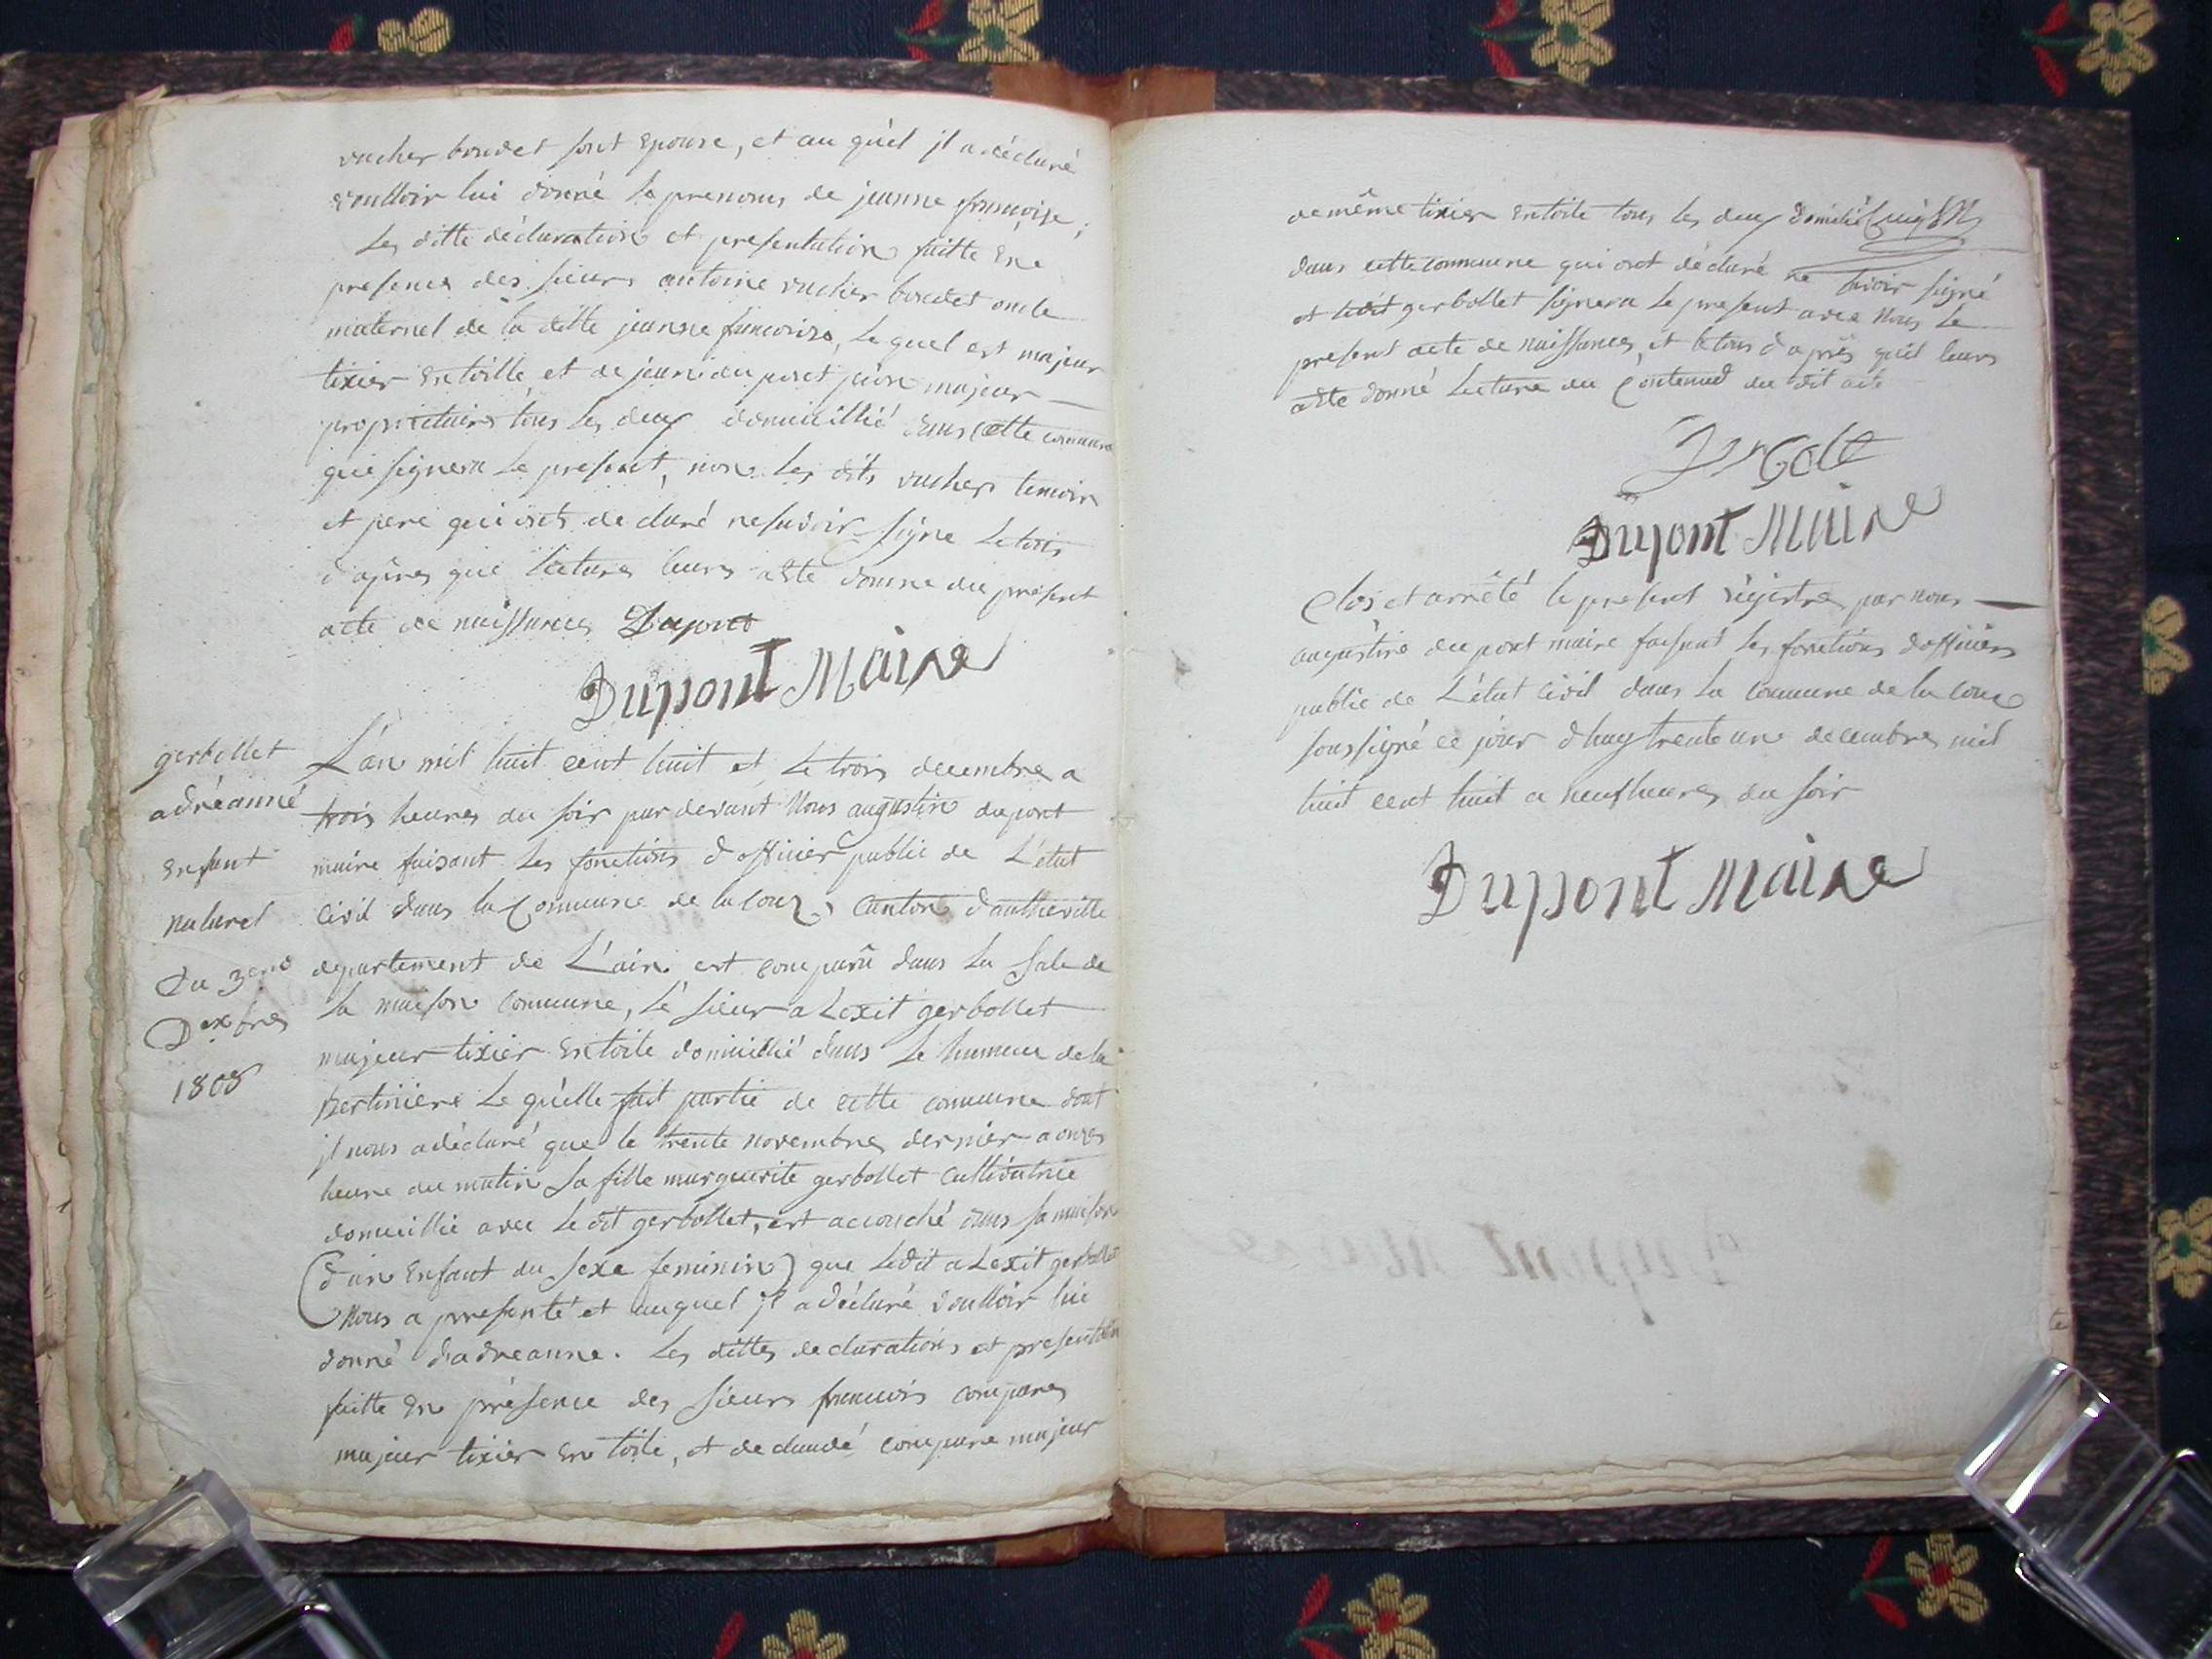 vucher boudet sont epouse, et au quel jl a déclaré
voulloir lui donné le prenoms de jeanne francoise;
Les ditte déclaration et presentation faitte en
presence des sieurs antoine vucher boudet oncle
maternel de la ditte jeanne francoise, lequel est majeur
tixier en toille et de jean du pont majeur
propriétaire tous les deux domicillié dans cette commune
qui signera le present, non les dits vucher temoin
et pere qui onts declaré ne savoir signe le tous
d'apres que lecture leurs a été donne du present
acte de naissances Dupont
Dupont Maire
gerbollet
adréanne
enfant
naturel
Du 3eme
Dexbres
1808
L'an mil huit cent huit et le trois decembre a
trois heures du soir par devant Nous augustin dupont
maire faisant les fonctions d'officier public de L'état
Civil dans la Commune de la coux, canton d'autheville
departement de L'ain est comparû dans la sale de
la maison commune, le sieur a Lexit gerbollet
majeur tixier en toile domicillié dans le hameau de la
Bertiniere Le quélle fait partie de cette commune dont
jl nous a déclaré que le trente novembre dernier a onze
heure du matin sa fille marguerite gerbollet cultivatrice
domicillié avec le dit gerbollet, est accouché dans sa maison
(d'un enfant du sexe feminin) que ledit a Lexit gerbollet
Nous a presenté et auquel jl a déclaré voulloir lui
donné d'adreanne. Les dittes declarations et presentation
faitte en présence des sieurs francois compare
majeur tixier en toile, et de claude compare majeur
de même tixier en toile tous les deux domicilié
dans cette commune qui ont déclaré ne savoir signé
et ledit gerbollet signera le present avec Nous le
present acte de naissances, et le tous d'après quil leurs
a été donné lecture du Contenud du dit acte
Dupont Maire
Clos et arrêté le present régistre par nous
augustin dupont maire faisant les fonctions d'officiers
public de L'état Civil dans la commune de la coux
soussigné ce jour d'huy trente un decembre mil
huit cent huit a neuf heures du soir
Dupont Maire